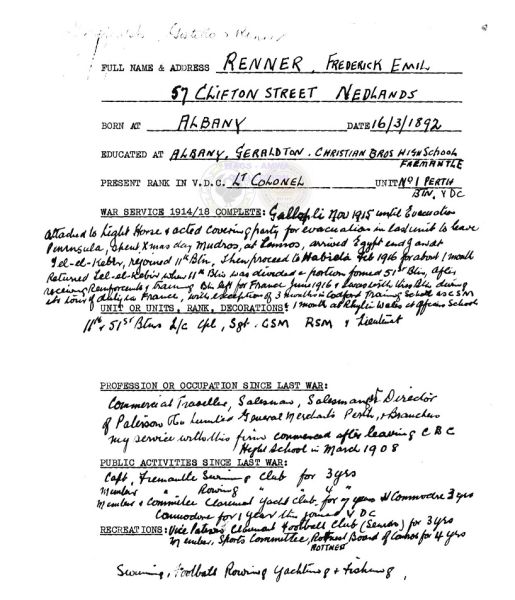 FULL NAME & ADDRESS RENNER, FREDERICK EMIL
57 CLIFTON STREET NEDLANDS
BORN AT ALBANY DATE 16/3/1892
EDUCATED AT ALBANY, GERALDTON. CHRISTIAN BROS HIGH School
FREMANTLE
PRESENT RANK IN V.D.C. LT COLONEL UNIT No 1 PERTH
BTN, V DC
WAR SERVICE 1914/18 COMPLETE: Gallopli Nov 1915 until Evacuation
attached to Light Horse & acted covering party for evacuation in last unit to leave
Peninsula, Spent Xmas day Mudros, at Lemnos, arrived Egypt
Tel-el-Kebir, rejoined 11th Btn, then proceed to Feb 1916 for about 1 month
Returned Tel-el-Kebir when 11th Btn was divided & portion formed 51st Btn, after
receiving Reinforcements & Training Bn left for France June 1916 & was with this Btn during
its tour of duty in France, with exception of 3 months in Codford Training School as CSM
UNIT OR UNITS, RANK, DECORATIONS: 1 month at Rhyl Wales at Officers School
11th & 51st Btns L/c Cpl, Sgt. CSM RSM & Lieutenant
PROFESSION OR OCCUPATION SINCE LAST WAR:
Commercial Traveller, Salesman, Salesman & Director
of Paterson & Co Limited General Merchants Perth, & Branches
my service with this firm commenced after leaving C B C
High School in March 1908
PUBLIC ACTIVITIES SINCE LAST WAR:
Capt, Fremantle Swimming Club for 3 yrs
Member " Rowing " " 4 "
Member & Committee Claremont Yacht Club for 7 years Commodore 3 yrs
Commodore for 1 year then joined V DC
RECREATIONS: Vice Claremont Football Club (Seniors) for 3 yrs
Member, Sports Committee, Rottnest Board of Control for 4 yrs
ROTTNEST
Swimming, Football Rowing Yachting & Fishing,